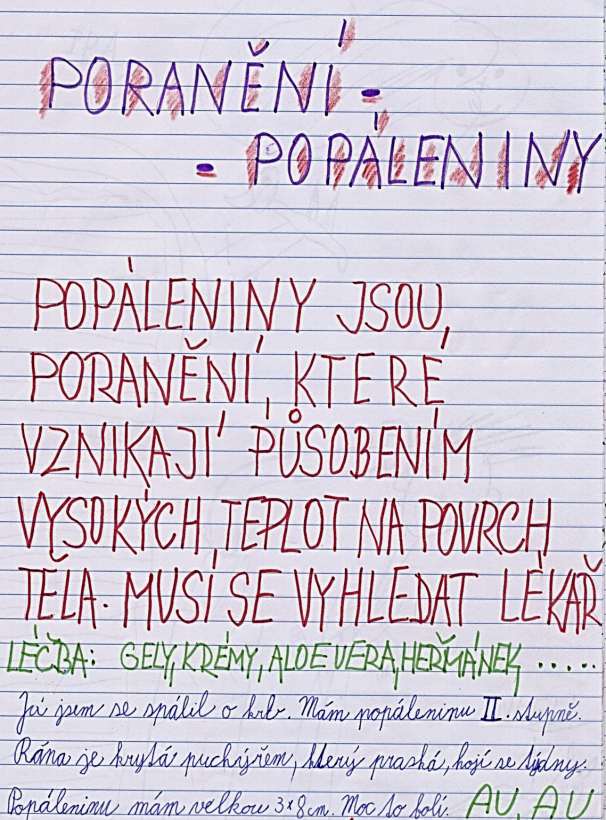 PORANĚNÍ -
- POPÁLENINY
POPÁLENINY JSOU,
PORANĚNÍ, KTERÉ
VZNIKAJÍ PŮSOBENÍM
VYSOKÝCH TEPLOT NA POVRCH
TĚLA. MUSÍ SE VYHLEDAT LÉKAŘ
LÉČBA: GELY, KRÉMY, ALOE VERA, HEŘMÁNEK .....
Já jsem se spálil o krb. Mám popáleninu II. stupně.
Rána je krytá puchýřem, který praská, hojí se týdny.
Popáleninu mám velkou 3x8cm. Moc to bolí. AU, AU